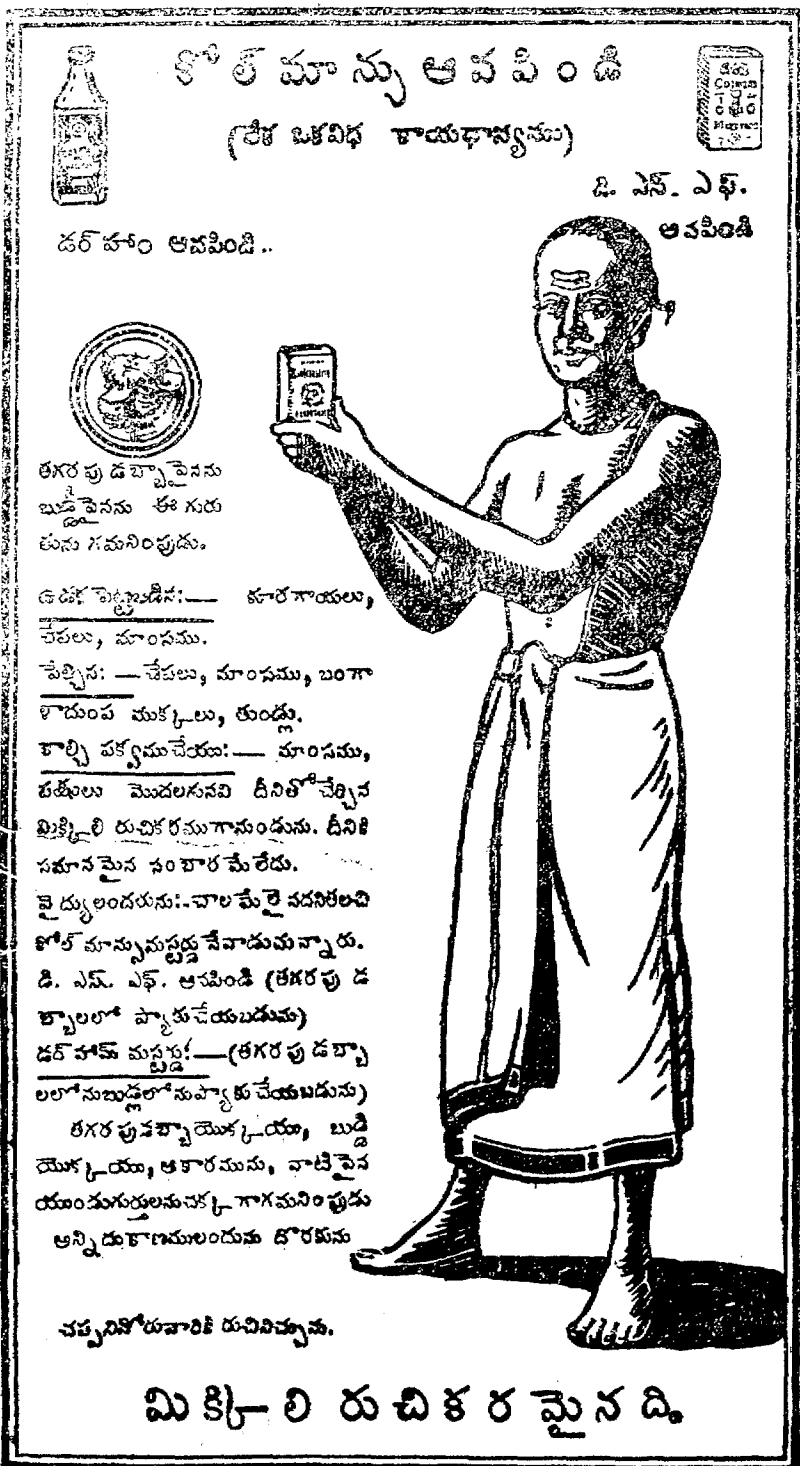 కోల్ మాన్సు ఆవపిండి
(లేక ఒకవిధ శాయధాన్యము)
డి. ఎస్. ఎఫ్.
ఆవపిండి
డర్ హాం ఆవపిండి..
తగరపు డబ్బాపైనను
బుడ్డిపైనను ఈ గురు
తును గమనింపుడు.
ఉడక పెట్టబడిన:— కూరగాయలు,
చేపలు, మాంసము.
పేల్చిన:— చేపలు, మాంసము, బంగా
ళాదుంప ముక్కలు, తుండ్లు.
కాల్చి పక్వముచేయు:— మాంసము,
పక్షులు మొదలగునవి దీనితోచేర్చిన
మిక్కిలి రుచికరముగానుండును. దీనికి
సమానమైన సంబారమేలేదు.
వైద్యులందఱును:-చాలమేలైనదనితలచి
కోల్ మాన్సుమస్టర్డు నేవాడుచున్నారు.
డి. ఎస్. ఎఫ్. ఆవపిండి (తగరపు డ
బ్బాలలో ప్యాకుచేయబడును)
డర్ హామ్ మస్టర్డు:—(తగరపు డబ్బా
లలోనుబుడ్లలోనుప్యాకుచేయబడును)
తగరపుడబ్బాయొక్కయు, బుడ్డి
యొక్కయు, ఆకారమును, వాటిపైన
యుండుగుర్తులనుచక్కగాగమనింపుడు
అన్ని దుకాణములందును దొరకును
చప్పనినోరువారికి రుచినిచ్చును.
మిక్కిలి రుచికరమైనది.